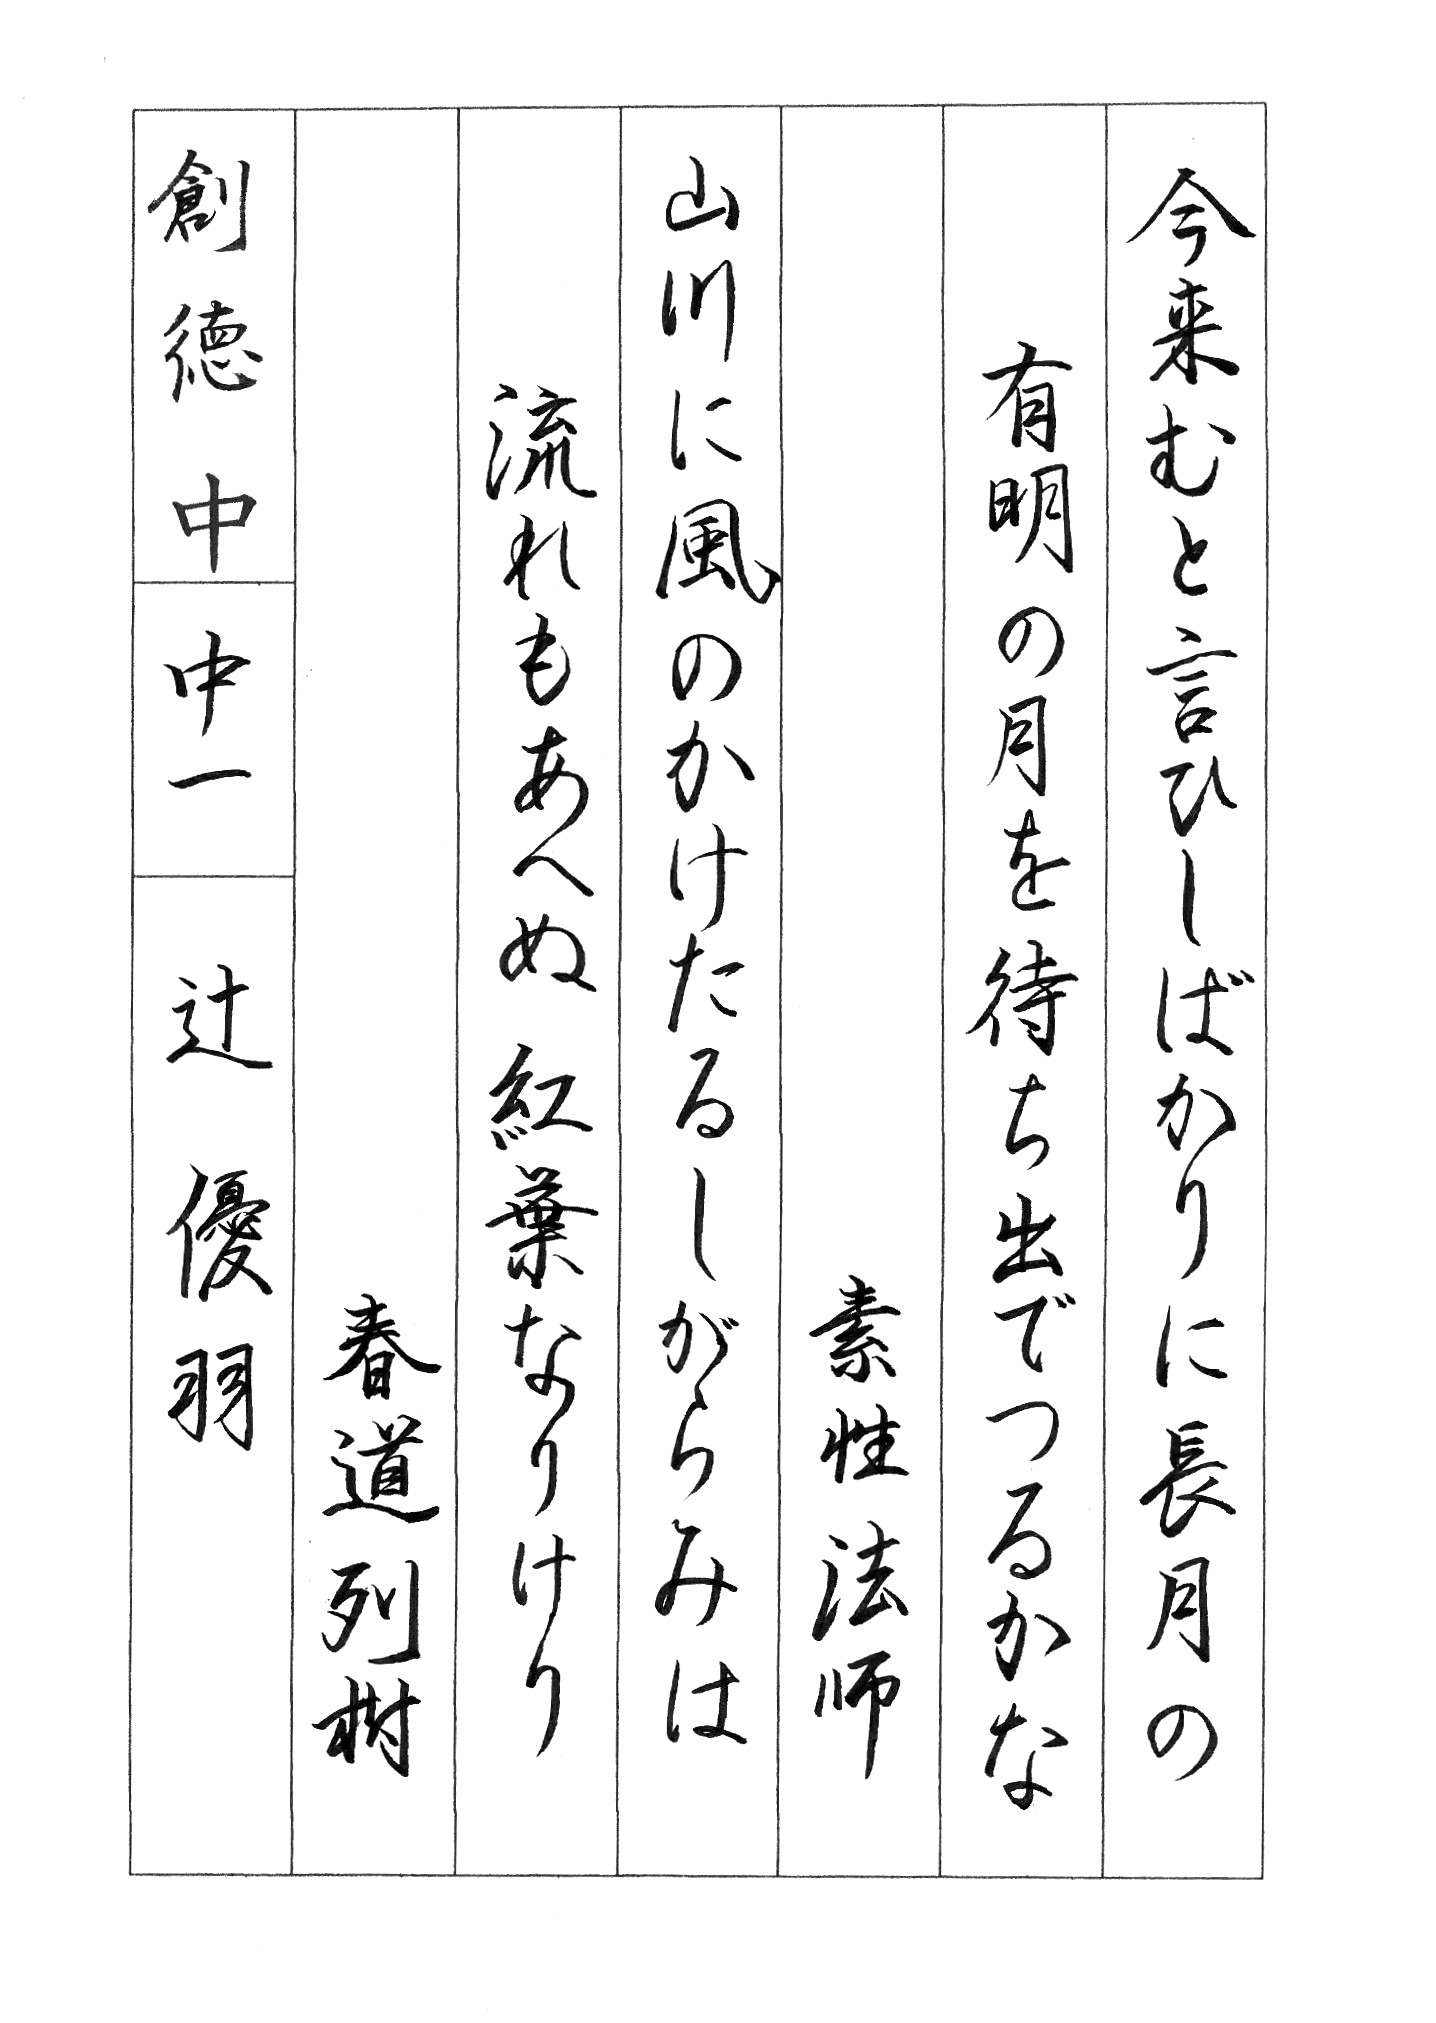 今来むと言ひしばかりに長月の
有明の月を待ち出でつるかな
素性法師
山川に風のかけたるしがらみは
流れもあへぬ紅葉なりけり
春道列樹
創徳中
中一
辻優羽